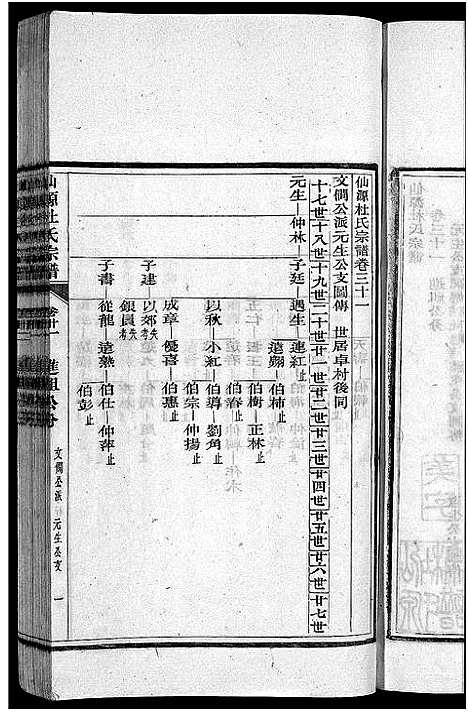 仙源杜氏宗譜卷三十一
文僩公派元生公支圖傳　世居卓村後同
十七世十八世十九世二十世廿一世廿二世廿三世廿四世廿五世廿六世廿七世
元生　仲林　子廷　遇生　連紅止
遠翱　伯柿止
伯樹　正林止
伯春止
以秋　小紅　伯導　劉角止
伯宗　仲揚止
成章　優喜　伯惠止
子建　以郊失考
銀員失考
子書　從龍　遠熟　伯仕　仲萍止
伯彭止
仙源杜氏宗譜
文僩公派　元生公支　一